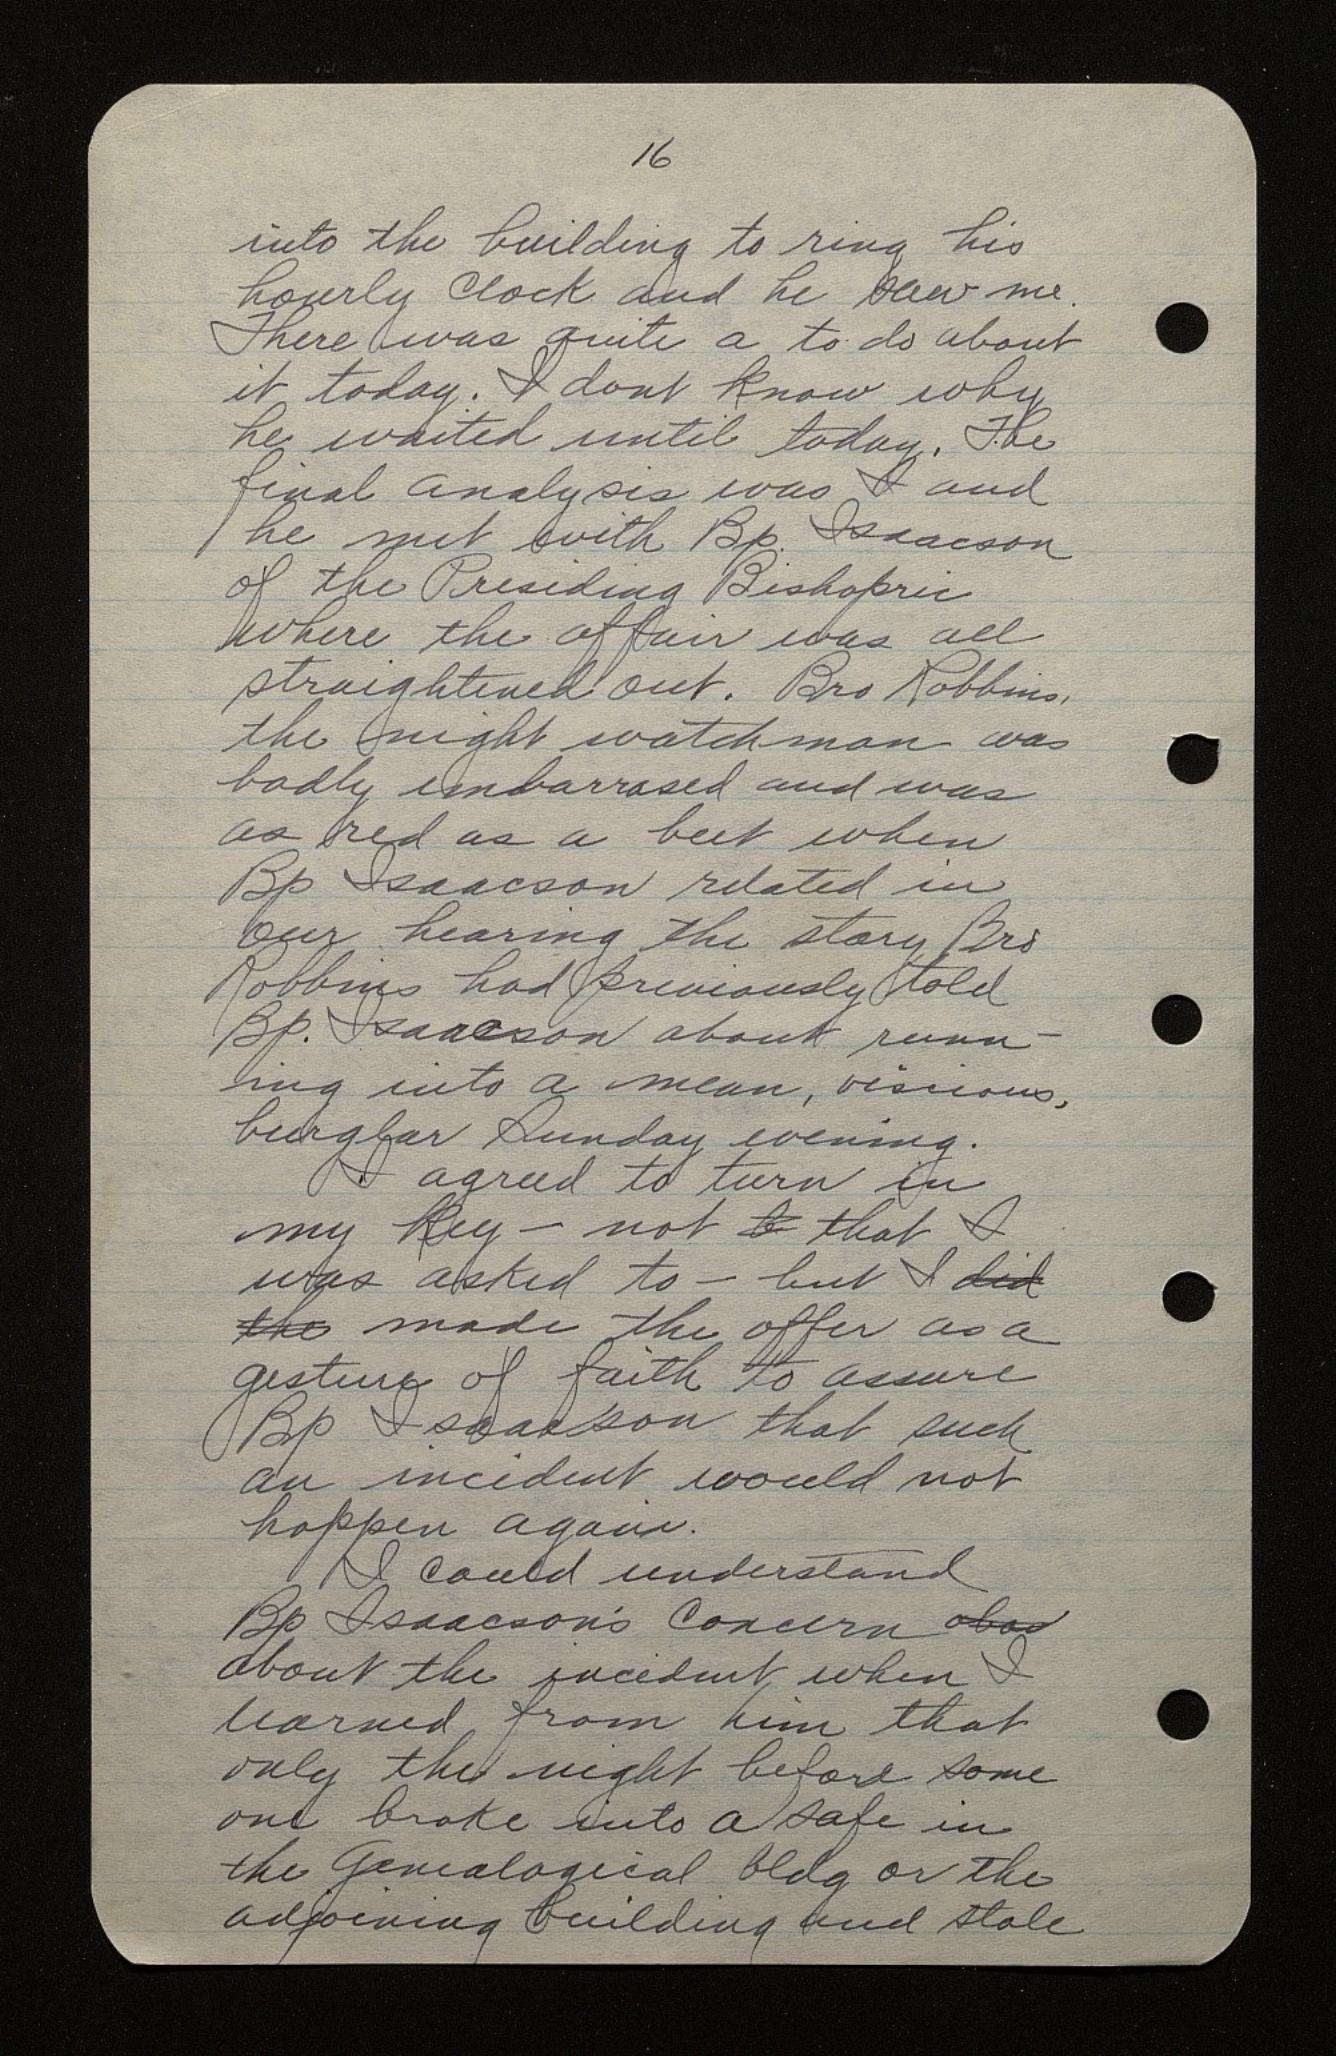 16
into the building to ring his
hourly clock and he saw me.
There was quite a to do about
it today. I dont know why
he waited until today. The
final analysis was I and
he met with Bp. Isaacson
of the Presiding Bishopric
where the affair was all
straightened out. Bro Robbins,
the night watchman was
badly embarrased and was
as red as a beet when
Bp Isaacson related in
our hearing the story Bro
Robbins had previously told
Bp. Isaacson about runn-
ing into a mean, viscious,
burglar Sunday evening.
I agreed to turn in
my key - not to that I
was asked to - but I did
the made the offer as a
gesture of faith to assure
Bp Isaacson that such
an incident would not
happen again.
I could understand
Bp Isaacson's concern abou
about the incident when I
learned from him that
only the night before some
one broke into a safe in
the Genealogical bldg or the
adjoining building and stole